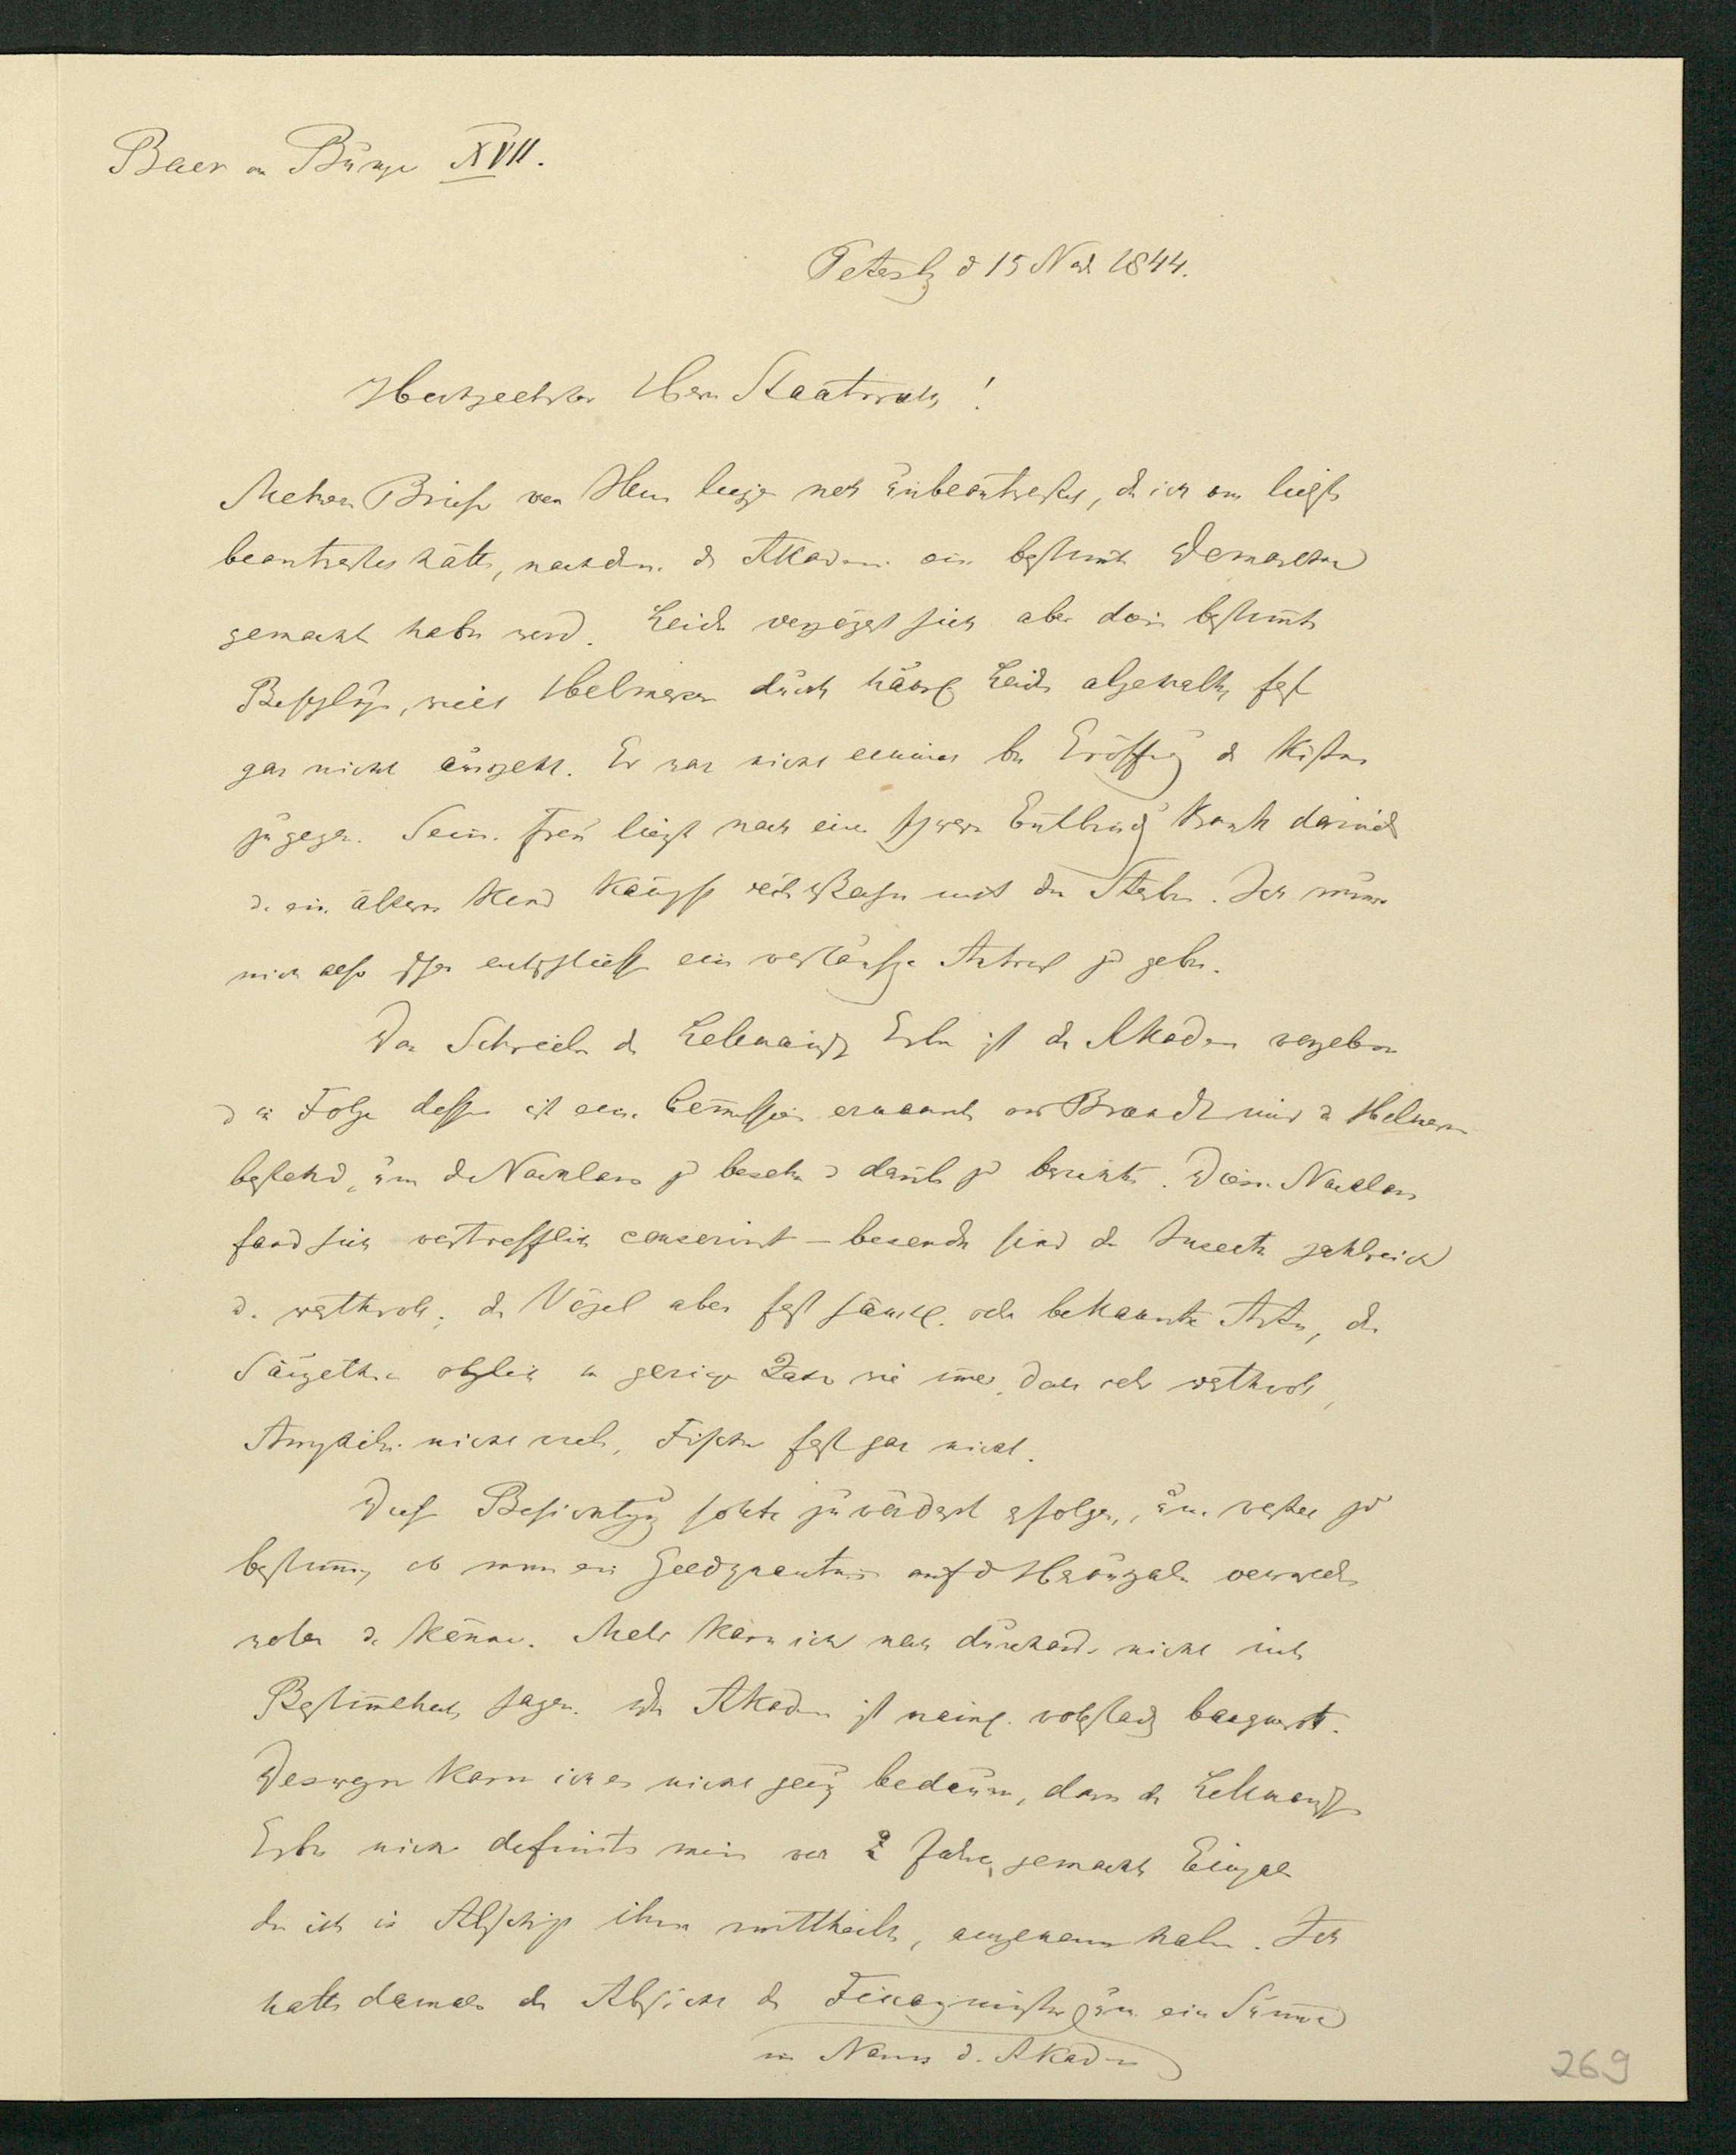 Baer an Bunge XVII.
Petersb d 15 Nov 1844.
Hochgeehrter Herr Staatsrath!
Mehre Briefe von Ihnen liegen noch unbeantwortet, die ich am liebst
beantwortet hätte, nachdem die Akademie ein bestimmte Demarche
gemacht haben werd. Leider verzögert sich aber dies bestimmte
weil Helmersen durch häusl Leiden abgehalten fast
gar nicht ausgeht. Er war nicht einmal bei Eröffnug der Kisten
zugegen. Seine Frau liegt nach einer schweren Entbindg krank darnied
d. ein älteres Kind kämpft mit dem Sterben. Ich muss
mich also entschliessen ein vorläufige Antwort zu geben.
Das Schreiben der Lehmannsch Erben ist der Akadem vorgelesen
d in Folge dessen ist eine Commission ernannt aus Brandt mir d Helmersen
bestehend, um den Nachlass zu besehn d darüb zu bericht. Dieser Nachlass
fand sich vortrefflich conservirt – besonders sind die Insecten zahlreich
d. werthvoll; die Vögel aber fast sämtl. sehr bekannte Arten, die
Säugethiere obgleich in geringer Zahl wie immer, doch sehr werthvoll,
Amphibien nicht viel, Fische fast gar nicht.
Diese Besichtigug sollte zuvörderst erfolgen, um weiter zu
bestimmen, ob man ein Geldquantum auf d Herausgabe verwenden
wollen d könne. Mehr kann ich noch durchaus nicht mit
Bestimmtheit sagen. Die Akadem ist nämlich vollständig banquerott.
Deswegen kann ich es nicht genug bedauern, dass die Lehmannsch
Erben nicht definitiv mein vor 2 Jahren gemachte Eingabe
die ich in Abschrift ihnen mittheilte, angenommen haben. Ich
hatte damals die Absicht den Finanzminister um eine Summe
im Namen d. Akadem
269